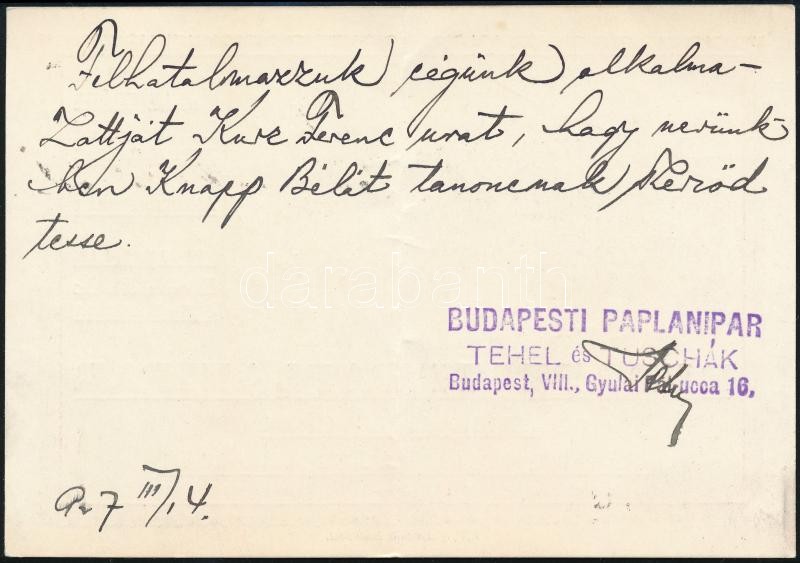 Felhatalmazzuk cégünk alkalma-
zattját Kurz Ferenc urat, hogy nevünk-
ben Knapp Bélát tanoncnak szerződ
tesse.
darabanth
BUDAPESTI PAPLANIPAR
TEHEL és TUSCHÁK
Budapest, VIII., Gyulai Pál ucca 16.
III/14.